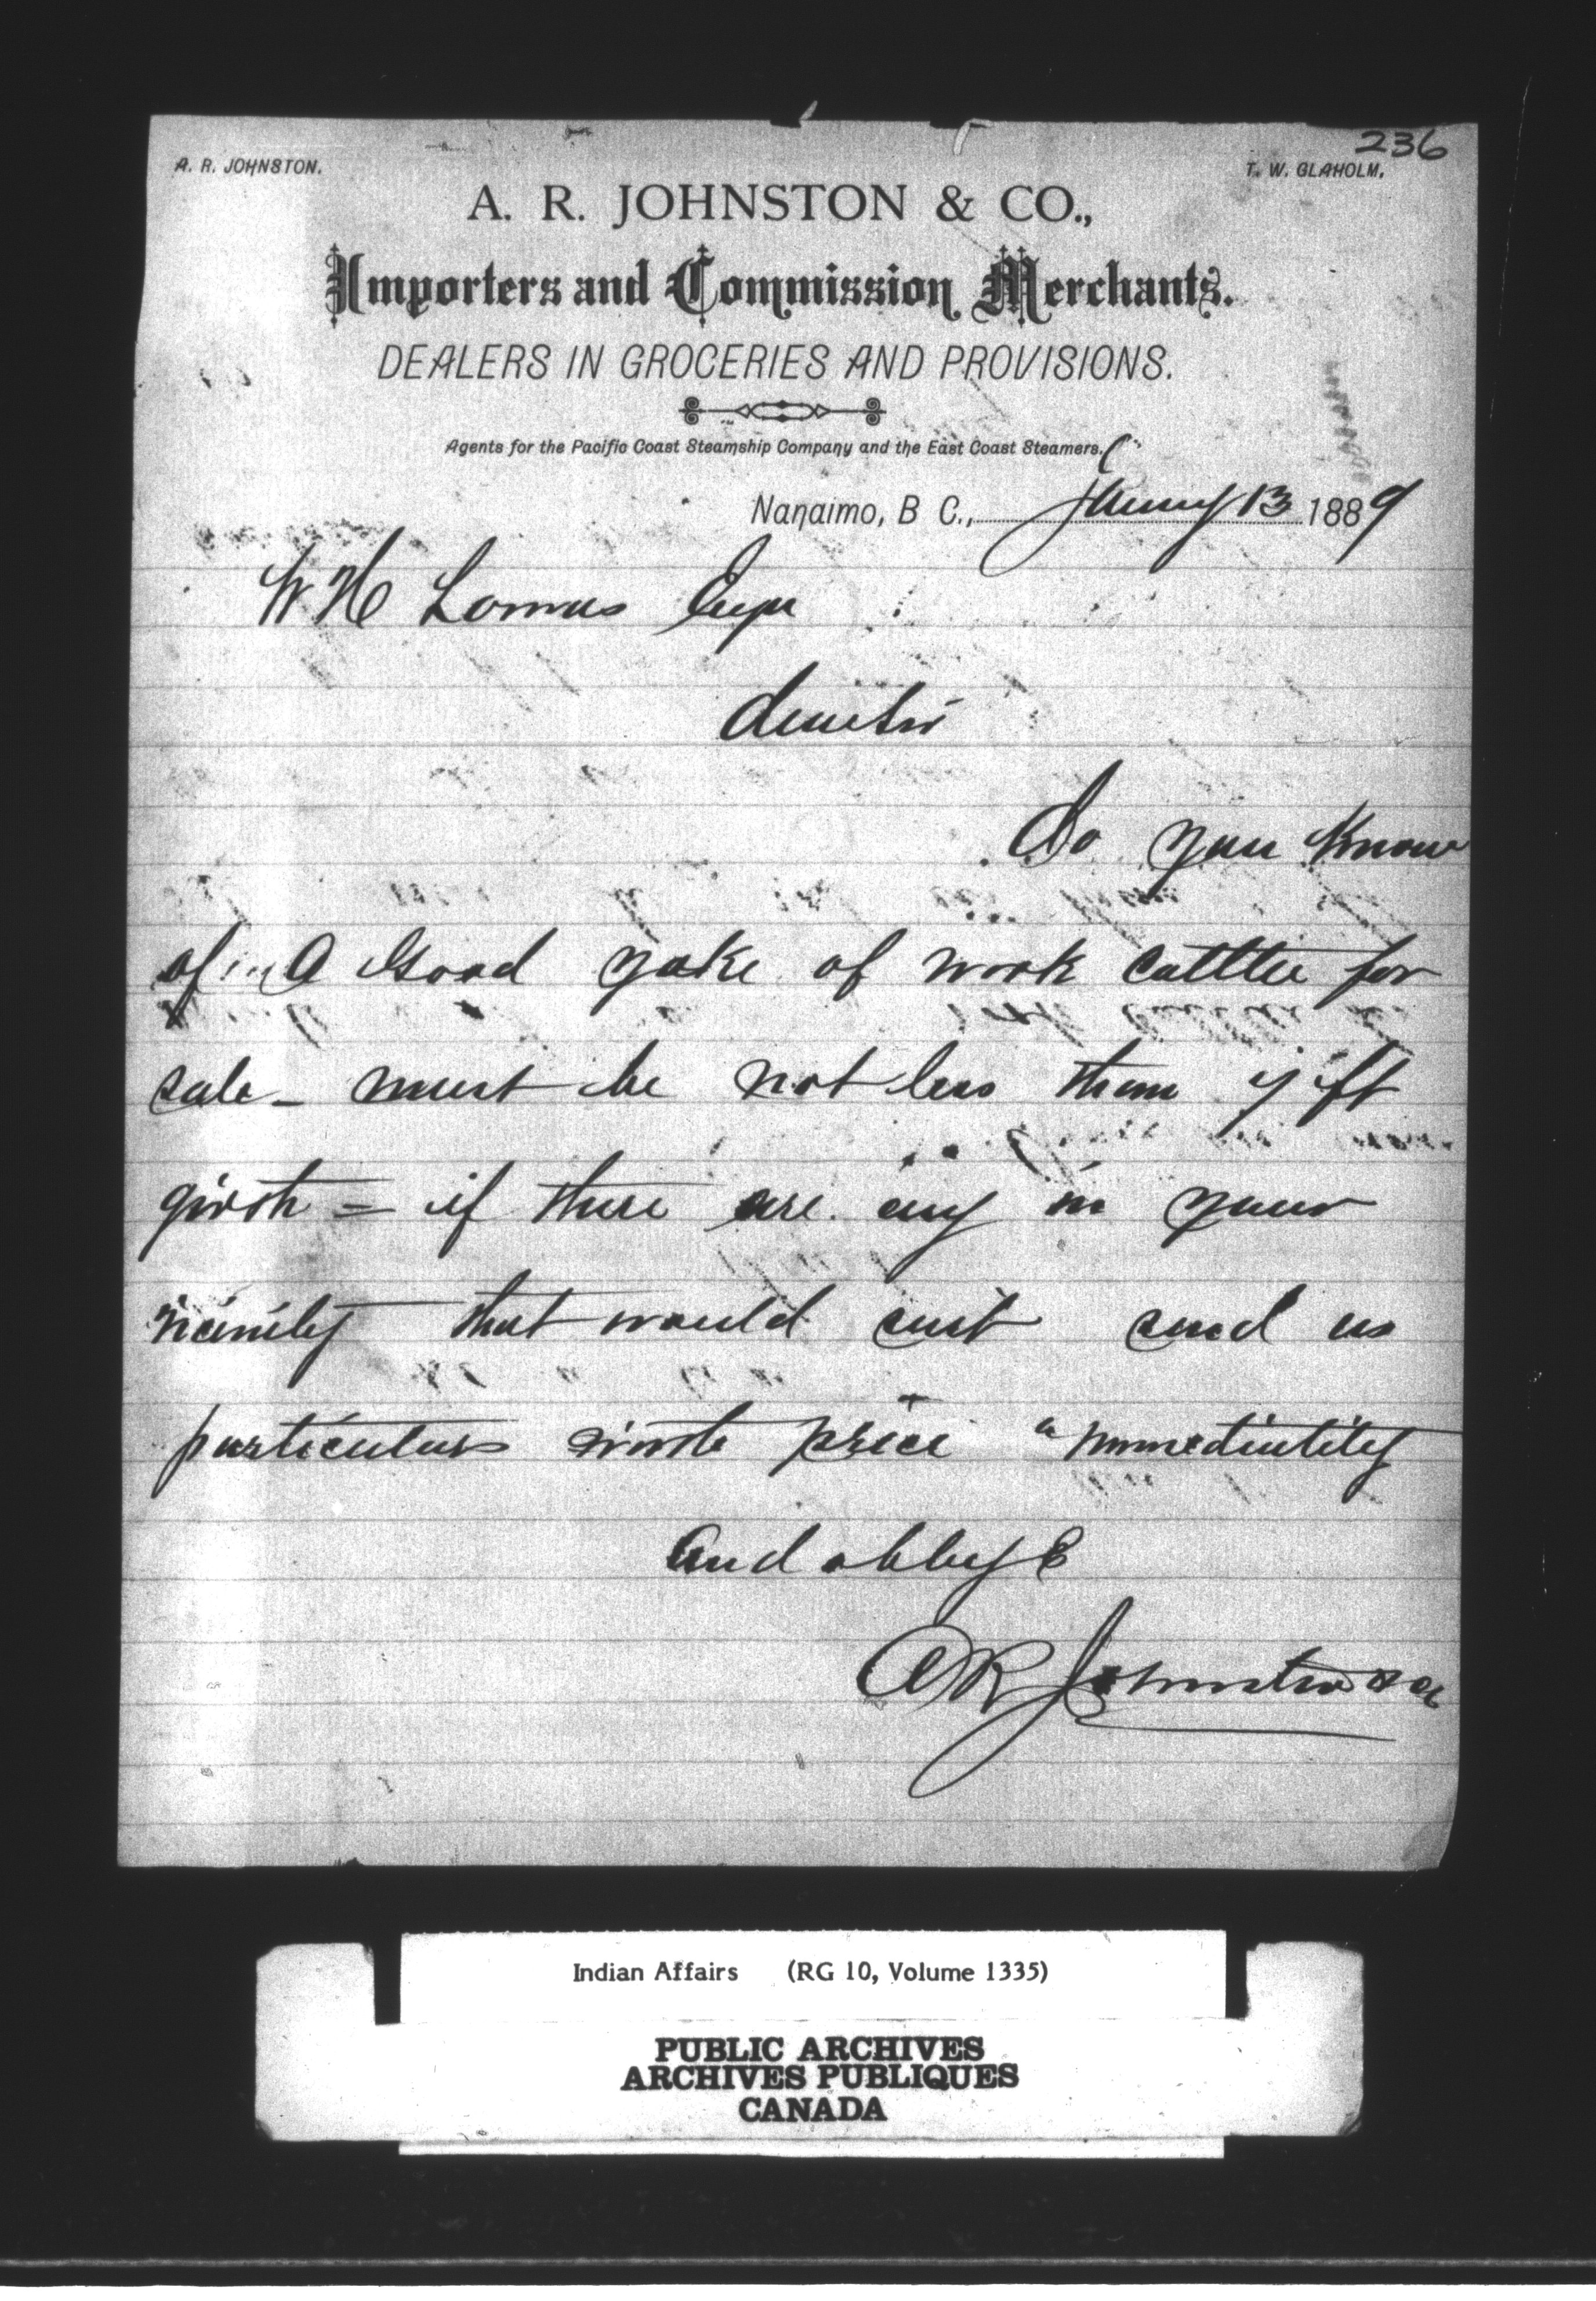 236
A. R. JOHNSTON.
T. W. GLAHOLM.
A. R. JOHNSTON & CO.,
Importers and Commission Merchants.
DEALERS IN GROCERIES AND PROVISIONS.
Agents for the Pacific Coast Steamship Company and the East Coast Steamers.
Nanaimo, B C., Jany 13 1889
W H Lomas Esqr
Dear Sir
Do you know
of a Good yoke of work cattle for
sale - must be not less than 7 ft
girth = if there are any in your
vicinity that would suit send us
particulars price immediately
and oblige
A R Johnston & Co
Indian Affairs (RG 10, Volume 1335)
PUBLIC ARCHIVES
ARCHIVES PUBLIQUES
CANADA